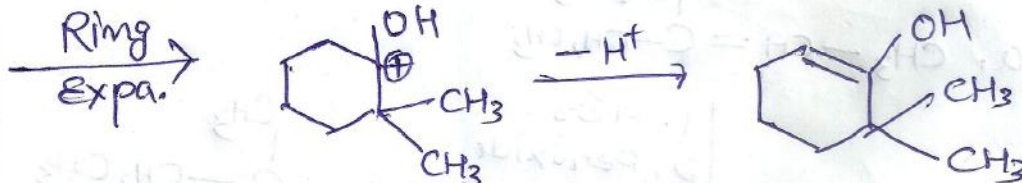 Ring
Expa.
OH
⊕
CH3
CH3
−H+
OH
CH3
CH3